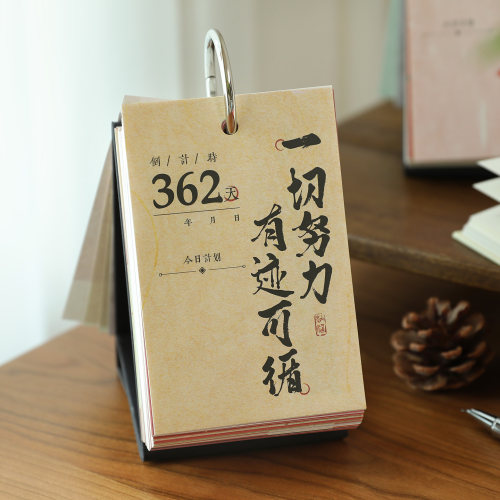 倒/計/時
362天
年 月 日
今日計划
一切努力
有迹可循